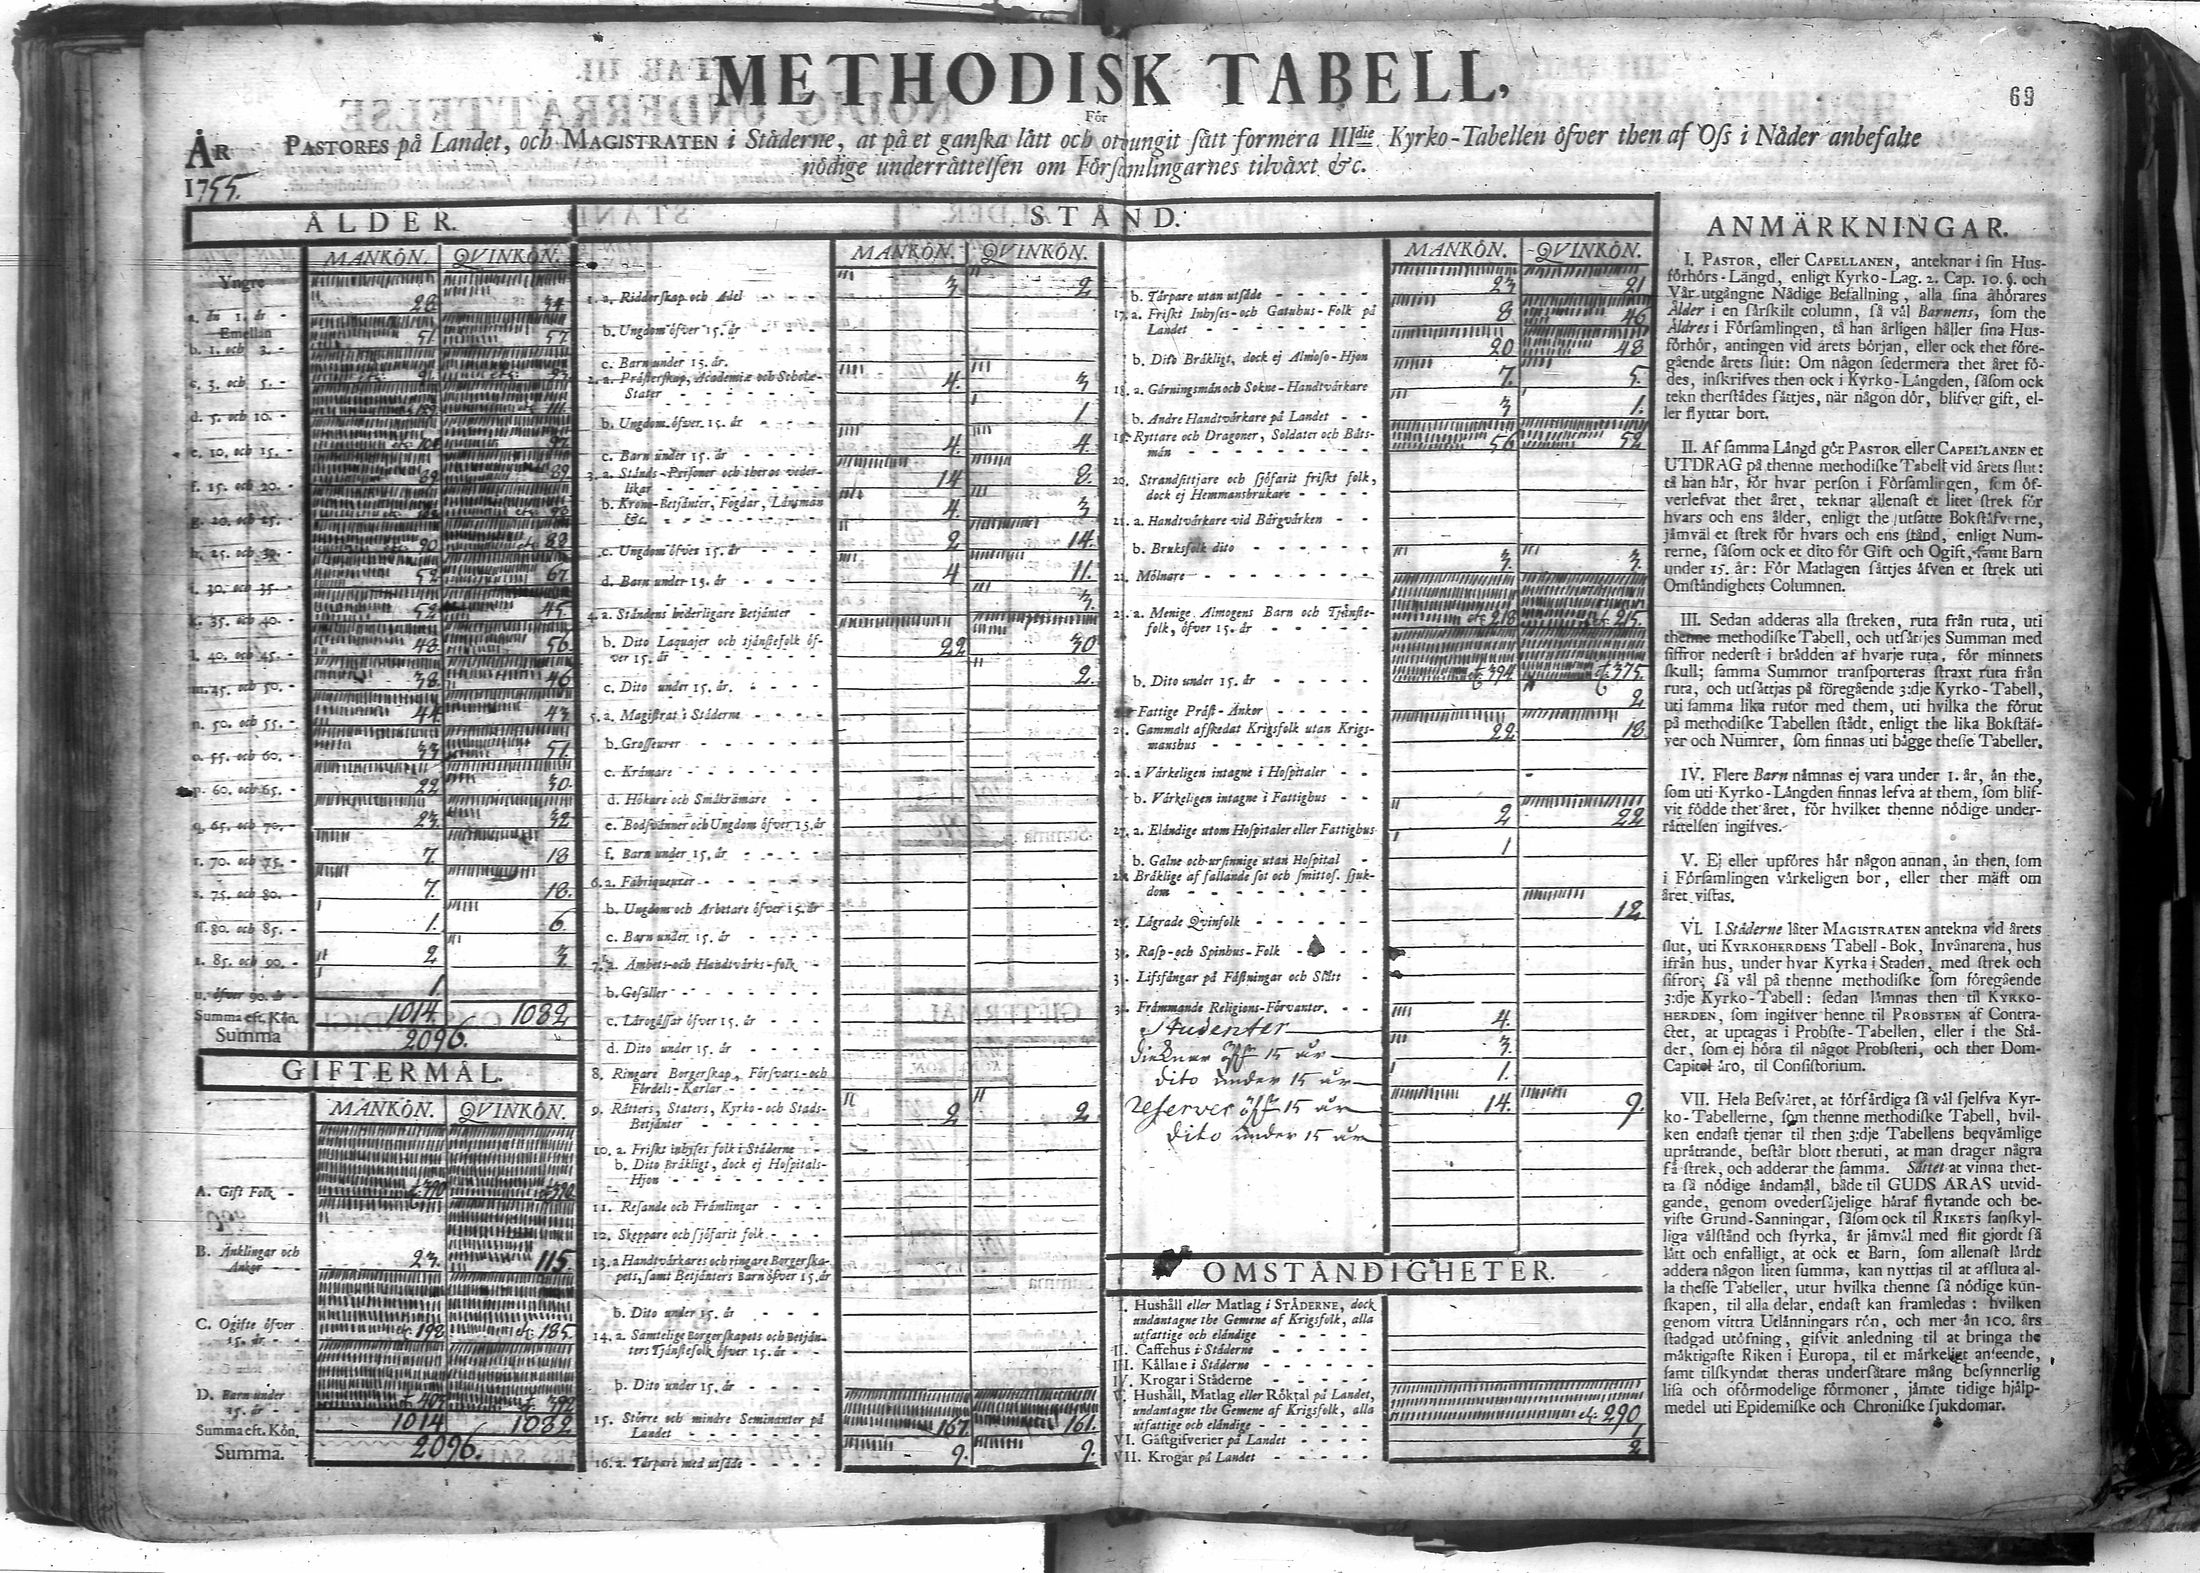 METHODISK TABELL,
69
För
ÅR
PASTORES på Landet, och MAGISTRATEN i Städerne, at på et ganska lätt och otvungit sätt formera IIIdie Kyrko-Tabellen öfver then af Oss i Nåder anbefalte
nödige underrättelsen om Församlingarnes tilväxt &c.
1755.
ÅLDER.
MANKÖN. QVINKÖN.
Yngre
a. än 1. år - 28 34
Emellan
b. 1. och 3. - 51. 57.
c. 3. och 5. -
d. 5. och 10. - 111.
e. 10. och 15. - 97.
f. 15. och 20. - 89 89.
g. 20. och 25.
h. 25. och 30. 90 88
i. 30. och 35. 52 67.
k. 35. och 40. 52 45.
l. 40. och 45. - 48. 56
m. 45. och 50. - 38. 46
n. 50. och 55. - 44. 43
o. 55. och 60. - 33 51.
p. 60. och 65. - 22 30.
q. 65. och 70. - 23. 32
r. 70. och 75. - 7. 18
s. 75. och 80. - 7. 18.
ss. 80. och 85. - 1. 6.
t. 85. och 90. - 2 3.
u. öfver 90. år - 1.
Summa eft. Kön. 1014. 1082
Summa 2096.
GIFTERMÅL.
MANKÖN. QVINKÖN.
A. Gift Folk - 390 390
B. Änklingar och
Änkor - - 23. 115.
C. Ogifte öfver
15. år - - 192 185.
D. Barn under
15. år - - 392
Summa eft. Kön. 1014 1082
Summa. 2096.
STÅND.
MANKÖN. QVINKÖN.
1. a. Ridderskap och Adel - - - - 3 2
b. Ungdom öfver 15. år
c. Barn under 15. år.
2. a. Prästerskap, Academiæ och Scholæ-
Stater - - - - - - 4. 3
b. Ungdom öfver 15. år - - - - 1.
c. Barn under 15. år - - - - 4. 4.
3. a. Stånds-Personer och theras veder-
likar - - - - - - 14 8.
b. Krono-Betjänter, Fogdar, Länsmän
&c. - - - - - - 4. 3
c. Ungdom öfver 15. år - - - - 2 14.
d. Barn under 15. år - - - - 4 11.
4. a. Ståndens hederligare Betjänter - 3.
b. Dito Laquajer och tjänstefolk öf-
ver 15. år - - - - - - 22 30
c. Dito under 15. år. - - - - 2.
5. a. Magistrat i Städerne - - - -
b. Grosseurer - - - - - -
c. Krämare - - - - - -
d. Hökare och Småkrämare - -
e. Bodsvänner och Ungdom öfver 15. år
f. Barn under 15. år - - - -
6. a. Fabriqueurer - - - - -
b. Ungdom och Arbetare öfver 15. år
c. Barn under 15. år - - - -
7. a. Ämbets-och Handtvärks-folk -
b. Gesäller - - - - - -
c. Lärogåssar öfver 15. år - - -
d. Dito under 15. år - - - -
8. Ringare Borgerskap, Försvars-och
Fördels-Karlar - - - - -
9. Rätters, Staters, Kyrko-och Stads-
Betjänter - - - - - 2 2
10. a. Friskt inhyses folk i Städerne - -
b. Dito Bräkligt, dock ej Hospitals-
Hjon - - - - - -
11. Resande och Främlingar - - -
12. Skeppare och sjöfarit folk - - -
13. a Handtvärkares och ringare Borgerska-
pets, samt Betjänters Barn öfver 15. år
b. Dito under 15. år - - - -
14. a. Samtelige Borgerskapets och Betjän-
ters Tjänstefolk öfver 15. år - -
b. Dito under 15. år - - - -
15. Större och mindre Seminanter på
Landet - - - - - - 167. 161.
16. a. Tärpare med utsäde - - - - 9. 9.
MANKÖN. QVINKÖN.
b. Tärpare utan utsäde - - - - 23 21
17. a. Friskt Inhyses-och Gatuhus-Folk på
Landet - - - - - - 8 46
b. Dito Bräkligt, dock ej Almoso-Hjon 20 48
18. a. Gärningsmän och Sokne-Handtvärkare 7. 5.
b. Andre Handtvärkare på Landet - - 3 1.
19. Ryttare och Dragoner, Soldater och Båts-
män - - - - - - 56 52
20. Strandsittjare och sjöfarit friskt folk,
dock ej Hemmansbrukare - - - -
21. a. Handtvärkare vid Bärgvärken - -
b. Bruksfolk dito - - - - - -
22. Mölnare - - - - - - 3. 3.
23. a. Menige Almogens Barn och Tjänste-
folk, öfver 15. år - - - - 218 215.
b. Dito under 15. år - - - - 394 375.
Fattige Präst-Änkor - - - - 2
25. Gammalt afskedat Krigsfolk utan Krigs-
manshus - - - - - - 22 18
26. a Värkeligen intagne i Hospitaler - -
b. Värkeligen intagne i Fattighus - -
27. a. Eländige utom Hospitaler eller Fattighus 2 22
b. Galne och ursinnige utan Hospital - 1
28. Bräklige af fallande sot och smittos. sjuk-
dom - - - - - -
29. Lägrade Qvinfolk - - - - - 12
30. Rasp-och Spinhus-Folk - - -
31. Lifsfångar på Fästningar och Slått -
32. Främmande Religions-Förvanter. - -
Studenter 4.
Diecknar öff 15 år 3.
dito under 15 år 1.
reserver öff 15 år 14. 9.
dito under 15 år
OMSTÄNDIGHETER.
I. Hushåll eller Matlag i STÄDERNE, dock
undantagne the Gemene af Krigsfolk, alla
utfattige och eländige - - - -
II. Caffehus i Städerne - - - -
III. Källare i Städerne - - - -
IV. Krogar i Städerne - - - -
V. Hushåll, Matlag eller Röktal på Landet,
undantagne the Gemene af Krigsfolk, alla
utfattige och eländige - - - - 290
VI. Gästgifverier på Landet - - - - 1
VII. Krogar på Landet - - - - 2
ANMÄRKNINGAR.
I. PASTOR, eller CAPELLANEN, anteknar i sin Hus-
förhörs-Längd, enligt Kyrko-Lag. 2. Cap. 10. §. och
Vår utgångne Nådige Befallning, alla sina åhörares
Ålder i en särskilt column, så väl Barnens, som the
Äldres i Församlingen, tå han årligen håller sina Hus-
förhör, antingen vid årets början, eller ock thet före-
gående årets slut: Om någon sedermera thet året fö-
des, inskrifves then ock i Kyrko-Längden, såsom ock
tekn therstädes sättjes, när någon dör, blifver gift, el-
ler flyttar bort.
II. Af samma Längd gör PASTOR eller CAPELLANEN et
UTDRAG på thenne methodiske Tabell vid årets slut:
tå han här, för hvar person i Församlingen, som öf-
verlefvat thet året, teknar allenast et litet strek för
hvars och ens ålder, enligt the utsatte Bokstäfverne,
jämväl et strek för hvars och ens stånd, enligt Num-
rerne, såsom ock et dito för Gift och Ogift, samt Barn
under 15. år: För Matlagen sättjes äfven et strek uti
Omständighets Columnen.
III. Sedan adderas alla streken, ruta från ruta, uti
thenne methodiske Tabell, och utsättjes Summan med
siffror nederst i brädden af hvarje ruta, för minnets
skull; samma Summor transporteras straxt ruta från
ruta, och utsättjas på föregående 3:dje Kyrko-Tabell,
uti samma lika rutor med them, uti hvilka the förut
på methodiske Tabellen städt, enligt the lika Bokstäf-
ver och Numrer, som finnas uti bägge thesse Tabeller.
IV. Flere Barn nämnas ej vara under 1. år, än the,
som uti Kyrko-Längden finnas lefva at them, som blif-
vit födde thet året, för hvilket thenne nödige under-
rättelsen ingifves.
V. Ej eller upföres här någon annan, än then, som
i Församlingen värkeligen bor, eller ther mäst om
året vistas.
VI. I Städerne låter MAGISTRATEN antekna vid årets
slut, uti KYRKOHERDENS Tabell-Bok, Invånarena, hus
ifrån hus, under hvar Kyrka i Staden, med strek och
sifror; så väl på thenne methodiske som föregående
3:dje Kyrko-Tabell: sedan lämnas then til KYRKO-
HERDEN, som ingifver henne til PROBSTEN af Contra-
ctet, at uptagas i Probste-Tabellen, eller i the Stä-
der, som ej höra til något Probsteri, och ther Dom-
Capitel äro, til Consistorium.
VII. Hela Besväret, at förfärdiga så väl sjelfva Kyr-
ko-Tabellerne, som thenne methodiske Tabell, hvil-
ken endast tjenar til then 3:dje Tabellens beqvämlige
uprättande, består blott theruti, at man drager några
få strek, och adderar the samma. Sättet at vinna thet-
ta så nödige ändamål, både til GUDS ÄRAS utvid-
gande, genom ovedersäjelige häraf flytande och be-
viste Grund-Sanningar, såsom ock til RIKETS sanskyl-
liga välstånd och styrka, är jämväl med flit gjordt så
lätt och enfalligt, at ock et Barn, som allenast lärdt
addera någon liten summa, kan nyttjas til at afsluta al-
la thesse Tabeller, utur hvilka thenne så nödige kun-
skapen, til alla delar, endast kan framledas: hvilken
genom vittra Utlänningars rön, och mer än 100. års
stadgad utöfning, gifvit anledning til at bringa the
mäktigaste Riken i Europa, til et märkeligt anseende,
samt tilskyndat theras undersåtare mång besynnerlig
lisa och oförmodelige förmoner, jämte tidige hjälp-
medel uti Epidemiske och Chroniske sjukdomar.